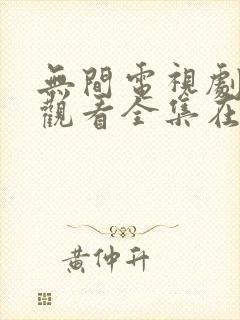 無間電視劇
觀看全集在
黃仲升